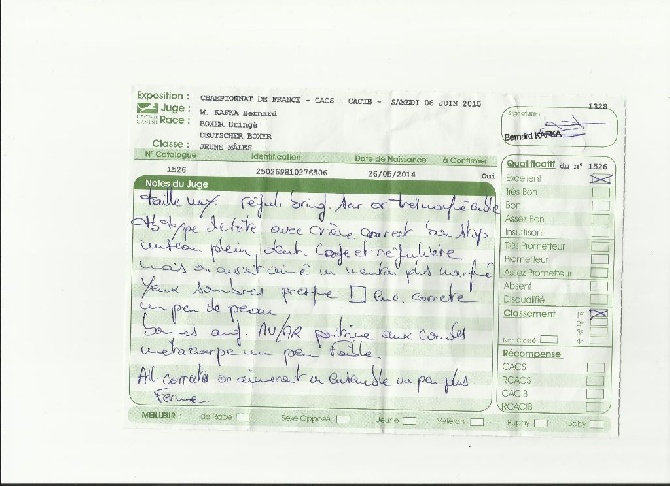 Exposition : CHAMPIONNAT DE FRANCE - CACS - CACIB - SAMEDI 06 JUIN 2015
1328
Juge : M. KAFKA Bernard
Race : BOXER Bringé
DEUTSCHER BOXER
Classe : JEUNE MÂLES
Signature :
Bernard KAFKA
N° Catalogue Identification Date de Naissance à Confirmer
1526 250269810276506 26/05/2014 Oui
Notes du Juge
taille max.
type avec crâne correct bon stop
museau plein dent. large et régulière
mais on aurait aimé un menton plus marqué
Yeux sombres presque enc. correcte
un peu de peau
bonnes ang. AV/AR poitrine aux coudes
métacarpe un peu faible.
All. correctes on aimerait un ensemble un peu plus
Ferme
Qualificatif du n° 1526
Excellent
Très Bon
Bon
Assez Bon
Insuffisant
Très Prometteur
Prometteur
Assez Prometteur
Absent
Disqualifié
Classement 1er
2e
3e
Non Classé 4e
Récompense
CACS
RCACS
CACIB
RCACIB
MEILLEUR : de Race Sexe Opposé Jeune Vétéran Puppy Baby